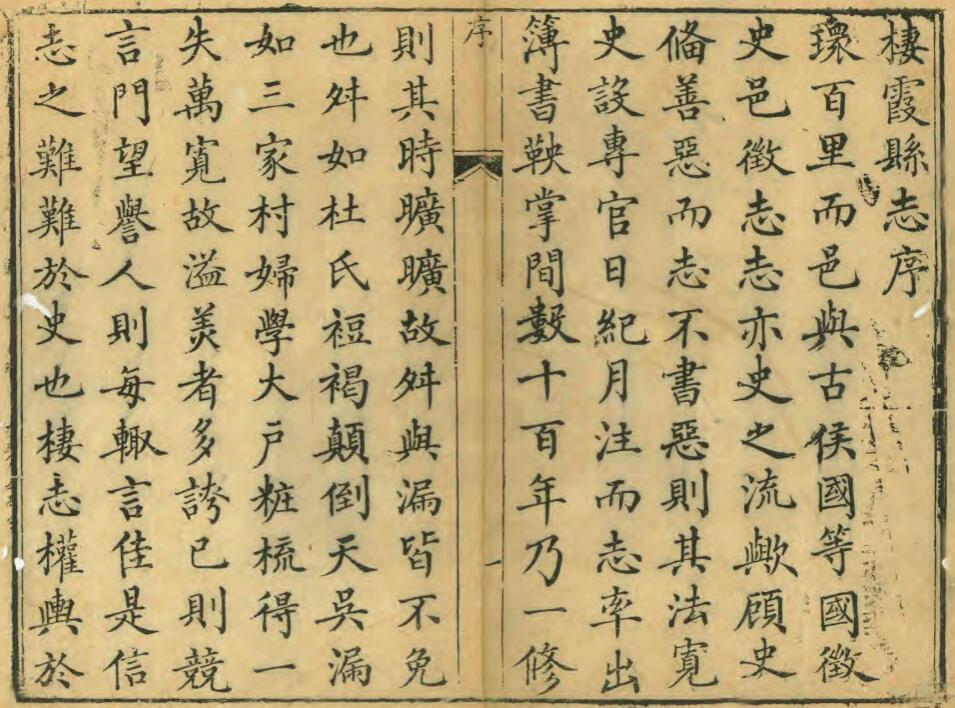 棲霞縣志序
環百里而邑與古侯國等國徵
史邑徵志志亦史之流歟顧史
偹善惡而志不書惡則其法寬
史設專官日紀月注而志率出
簿書鞅掌間數十百年乃一修
序
一
則其時曠曠故舛與漏皆不免
也舛如杜氏裋褐顛倒天吳漏
如三家村婦學大戶粧梳得一
失萬寬故溢美者多誇已則競
言門望譽人則每輙言佳是信
志之難難於史也棲志權輿於